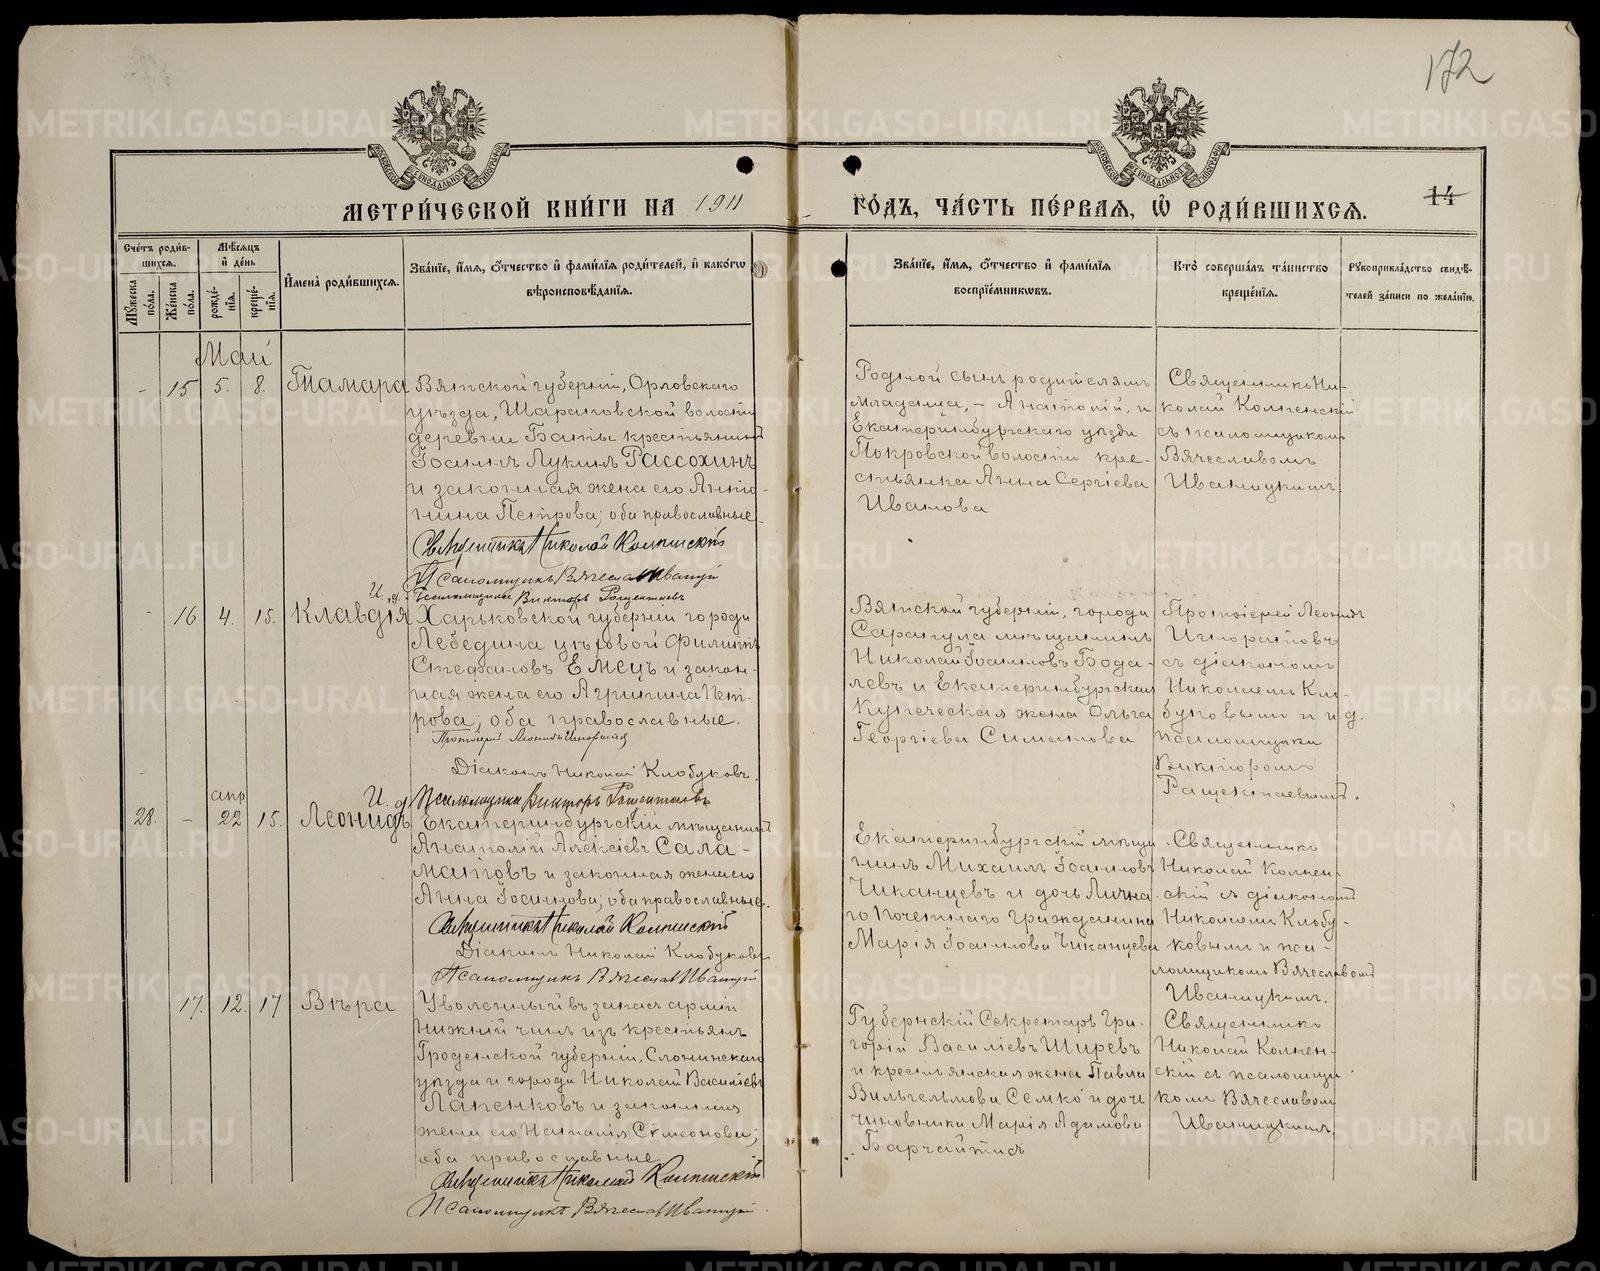 172
МЕТРИ́ЧЕСКОЙ КНИ́ГИ НА 1911 ГО́ДЪ, ЧА́СТЬ ПЕ́РВАЯ, Ѡ РОДИ́ВШИХСЯ.
14
Сче́тъ роди́в-
шихся.
Мꙋ́жеска по́ла.
Же́нска по́ла.
Мѣ́сяцъ
и҆ де́нь
рожде́-
нїѧ.
креще́-
нїѧ.
И҆мена̀ роди́вшихся.
Зва́нїе, и҆́мѧ, ѻ҆́тчество и҆ фами́лїѧ роди́телей, и҆ како́гѡ
вѣроисповѣ́данїѧ.
Зва́нїе, и҆́мѧ, ѻ҆́тчество и҆ фами́лїѧ
воспрїе́мникѡвъ.
Кто̀ соверша́лъ та́инство
креще́нїѧ.
Рꙋкоприкла́дство свидѣ́-
телей за́писи по жела́нїю.
Май
- 15 5. 8. Тамара
Вятской губерніи, Орловскаго
уѣзда, Шараповской волости
деревни Баты крестьянинъ
Іоаннъ Лукинъ Рассохинъ
и законная жена его Анто-
нина Петрова; оба православные.
Священникъ Николай Колпенскій
Псаломщикъ Вячеслав Иваницкій
Родной сынъ родителямъ
младенца, - Анатолій, и
Екатеринбургскаго уѣзда
Покровской волости кре-
стьянка Анна Сергіева
Иванова
Священникъ Ни-
колай Колпенскій
съ псаломщикомъ
Вячеславомъ
Иваницкимъ.
И. д. Псаломщика Викторъ Ращектаевъ
- 16 4. 15. Клавдія
Харьковской губерніи города
Лебедина цеховой Филиппъ
Стефановъ Емецъ и закон-
ная жена его Агрипина Пет-
рова; оба православные.
Протоіерей Леонидъ Игноратовъ
Діаконъ Николай Клобуковъ.
И. д. Псаломщика Викторъ Ращектаевъ
Вятской губерніи, города
Сарапула мѣщанинъ
Николай Іоанновъ Бода-
левъ и Екатеринбургская
купеческая жена Ольга
Георгіева Симанова
Протоіерей Леонидъ
Игноратовъ
съ діакономъ
Николаемъ Кло-
буковымъ и и. д.
псаломщика
Викторомъ
Ращектаевымъ.
апр
28. - 22 15. Леонидъ
Екатеринбургскій мѣщанинъ
Анатолій Алексіевъ Сала-
матовъ и законная жена его
Анна Іоаннова; оба православные.
Священникъ Николай Колпенскій
Діаконъ Николай Клобуковъ
Псаломщикъ Вячеслав Иваницкій
Екатеринбургскій мѣща-
нинъ Михаилъ Іоанновъ
Чиканцевъ и дочь Лична-
го Почетнаго Гражданина
Марія Іоаннова Чиканцева
Священникъ
Николай Колпен-
скій съ діакономъ
Николаемъ Клобу-
ковымъ и пса-
ломщикомъ Вячеславомъ
Иваницкимъ.
17. 12. 17 Вѣра
Уволенный въ запасъ арміи
нижній чинъ изъ крестьянъ
Гроденской губерніи, Слонимскаго
уѣзда и города Николай Василіевъ
Лапенковъ и законная
жена его Наталія Сѵмеонова;
оба православные
Священникъ Николай Колпенскій
Псаломщикъ Вячеслав Иваницкій
Губернскій Секретарь Гри-
горій Василіевъ Ширевъ
и крестьянская жена Павла
Вильгельмова Семко и дочь
чиновника Марія Адамова
Барчайтисъ
Священникъ
Николай Колпен-
скій съ псаломщи-
комъ Вячеславомъ
Иваницкимъ.
METRIKI.GASO-URAL.RU